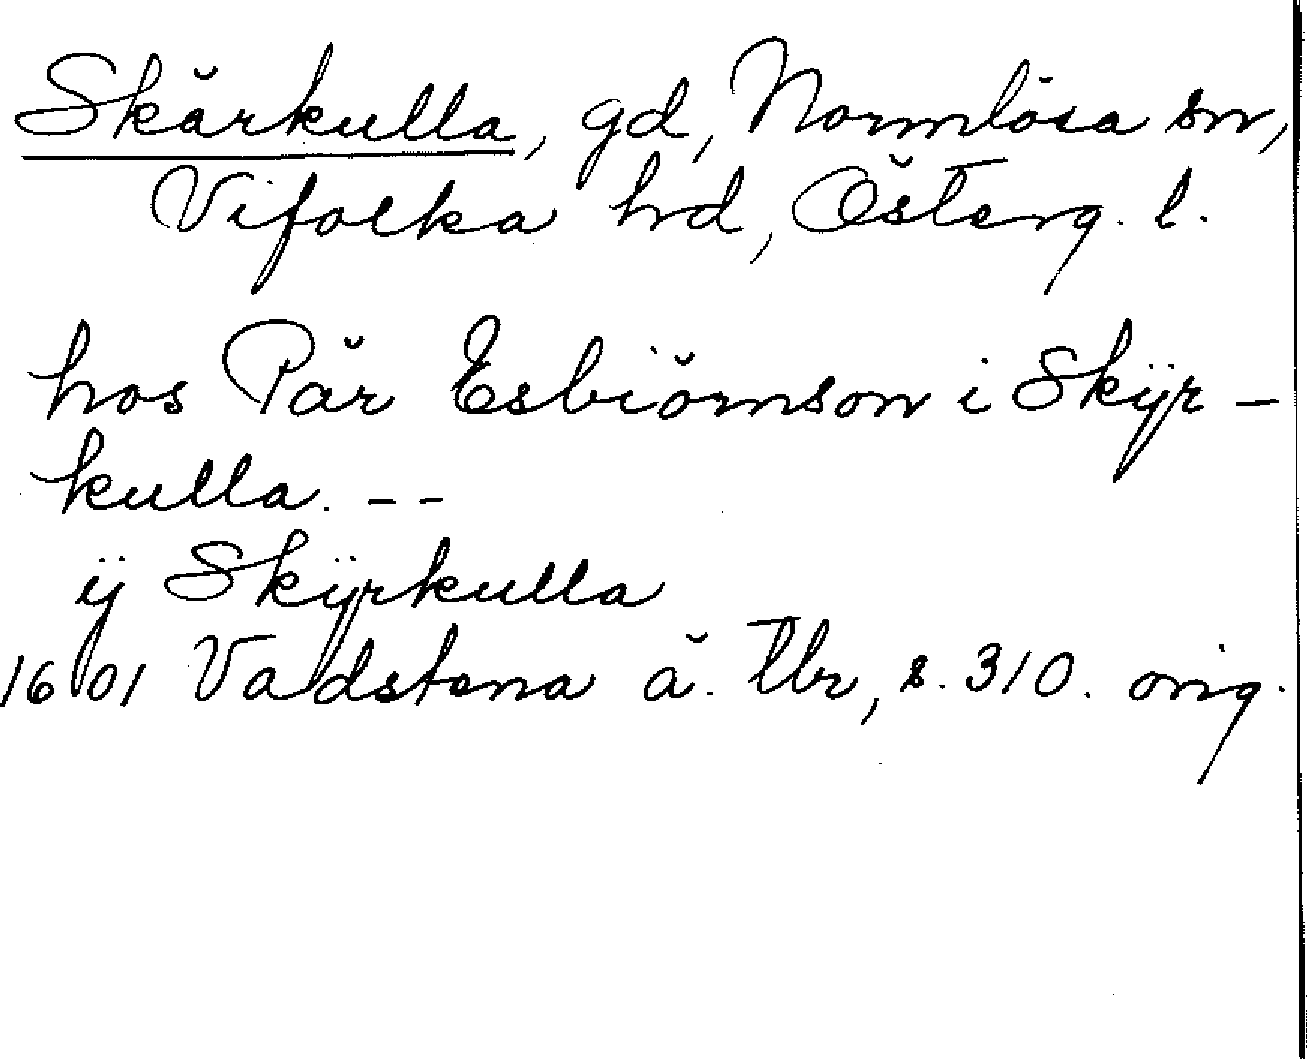 Skärkulla, gd, Normlösa sn,
Vifolka hd, Österg. l.
hos Pär Esbiörnson i Skÿr-
kulla. --
ÿ Skÿrkulla
1601 Vadstena ä. Tbr, s. 310. orig.